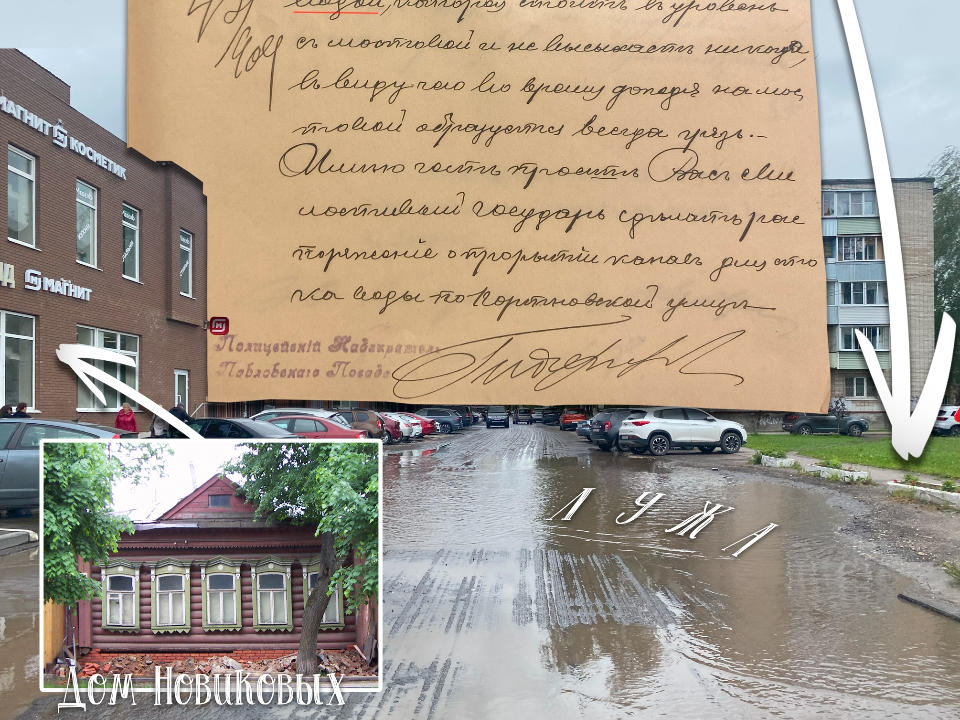 которая стоитъ въ уровень
съ мостовой и не высыхаетъ никогда,
въ виду чего во время дождя на мос
товой образуется всегда грязь.-
Имѣю честь просить Васъ ми
лостивый Государь сдѣлать рас
поряженіе о прорытіи канавъ для сто
ка воды по улицы
Полицейскій Надзиратель
Павловскаго Посада
МАГНИТ КОСМЕТИК
МАГНИТ
ЛУЖА
Дом Новиковых